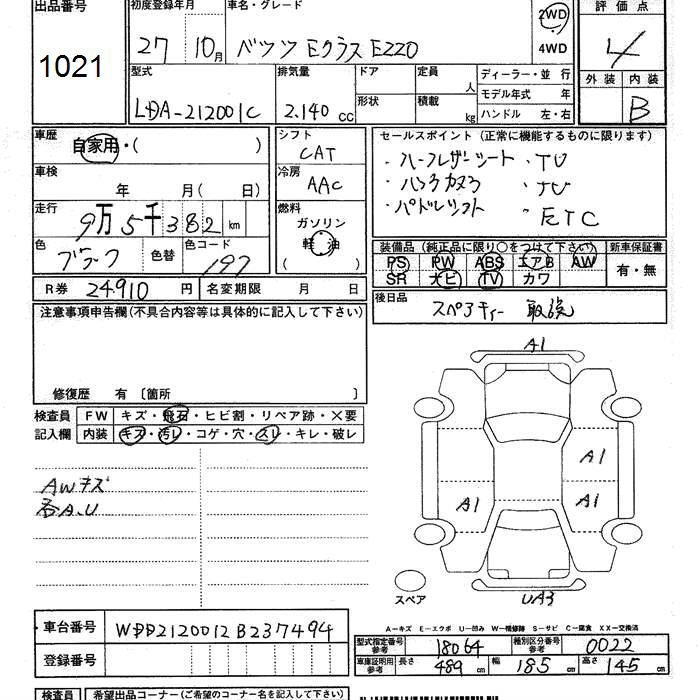 出品番号 初度登録年月 車名・グレード 2WD 評価点
1021 27 10月 ベンツ Eクラス E220 4WD 4
型式 排気量 ドア 定員 人 ディーラー・並行 外装 内装
LDA-212001C 2.140 cc 形状 積載 kg モデル年式 年 B
ハンドル 左・右
車歴 自家用・( ) シフト CAT セールスポイント(正常に機能するものに限ります)
車検 年 月( 日) 冷房 AAC ・ハーフレザーシート ・TV
走行 9万5千382km 燃料 ガソリン 軽油 ・バックカメラ
色 色替 色コード 197 ・パドルシフト ・ETC
装備品(純正品に限り○をつけて下さい) 新車保証書
PS PW ABS エアB AW 有・無
SR ナビ TV カワ
R券 24910円 名変期限 月 日 後日品
注意事項申告欄(不具合内容等は具体的に記入して下さい)
修復歴 有〔箇所 〕
A1
検査員 FW キズ・飛石・ヒビ割・リペア跡・×要
記入欄 内装 キズ・汚レ・コゲ・穴・スレ・キレ・破レ
A1
AWキズ
各A.U
A1 A1
スペア UA3
A-キズ E-エクボ U-凹み W-補修跡 S-サビ C-腐食 XX-交換済
車台番号 WDD2120012B237494
登録番号
型式指定番号 参考 18064 種別区分番号 参考 0022
車庫証明用 参考 長さ 489cm 幅 185cm 高さ 145cm
検査員 希望出品コーナー(ご希望のコーナー名を記入して下さい)